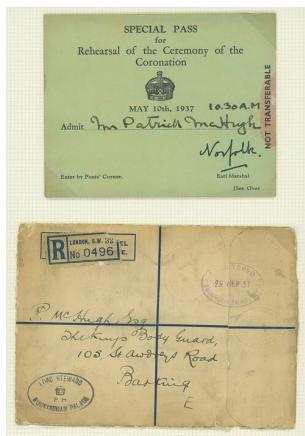 SPECIAL PASS
for
Rehearsal of the Ceremony of the
Coronation
MAY 10th, 1937 10.30 A.M
Admit Mr Patrick McHugh
NOT TRANSFERABLE
Norfolk.
Enter by Poets' Corner. Earl Marshal
[See Over
R LONDON, S.W.
No 0496
P. McHugh Esq
The Kings Body Guard,
105, St Awdrys Road
Barking
E
LORD STEWARD
BUCKINGHAM PALACE